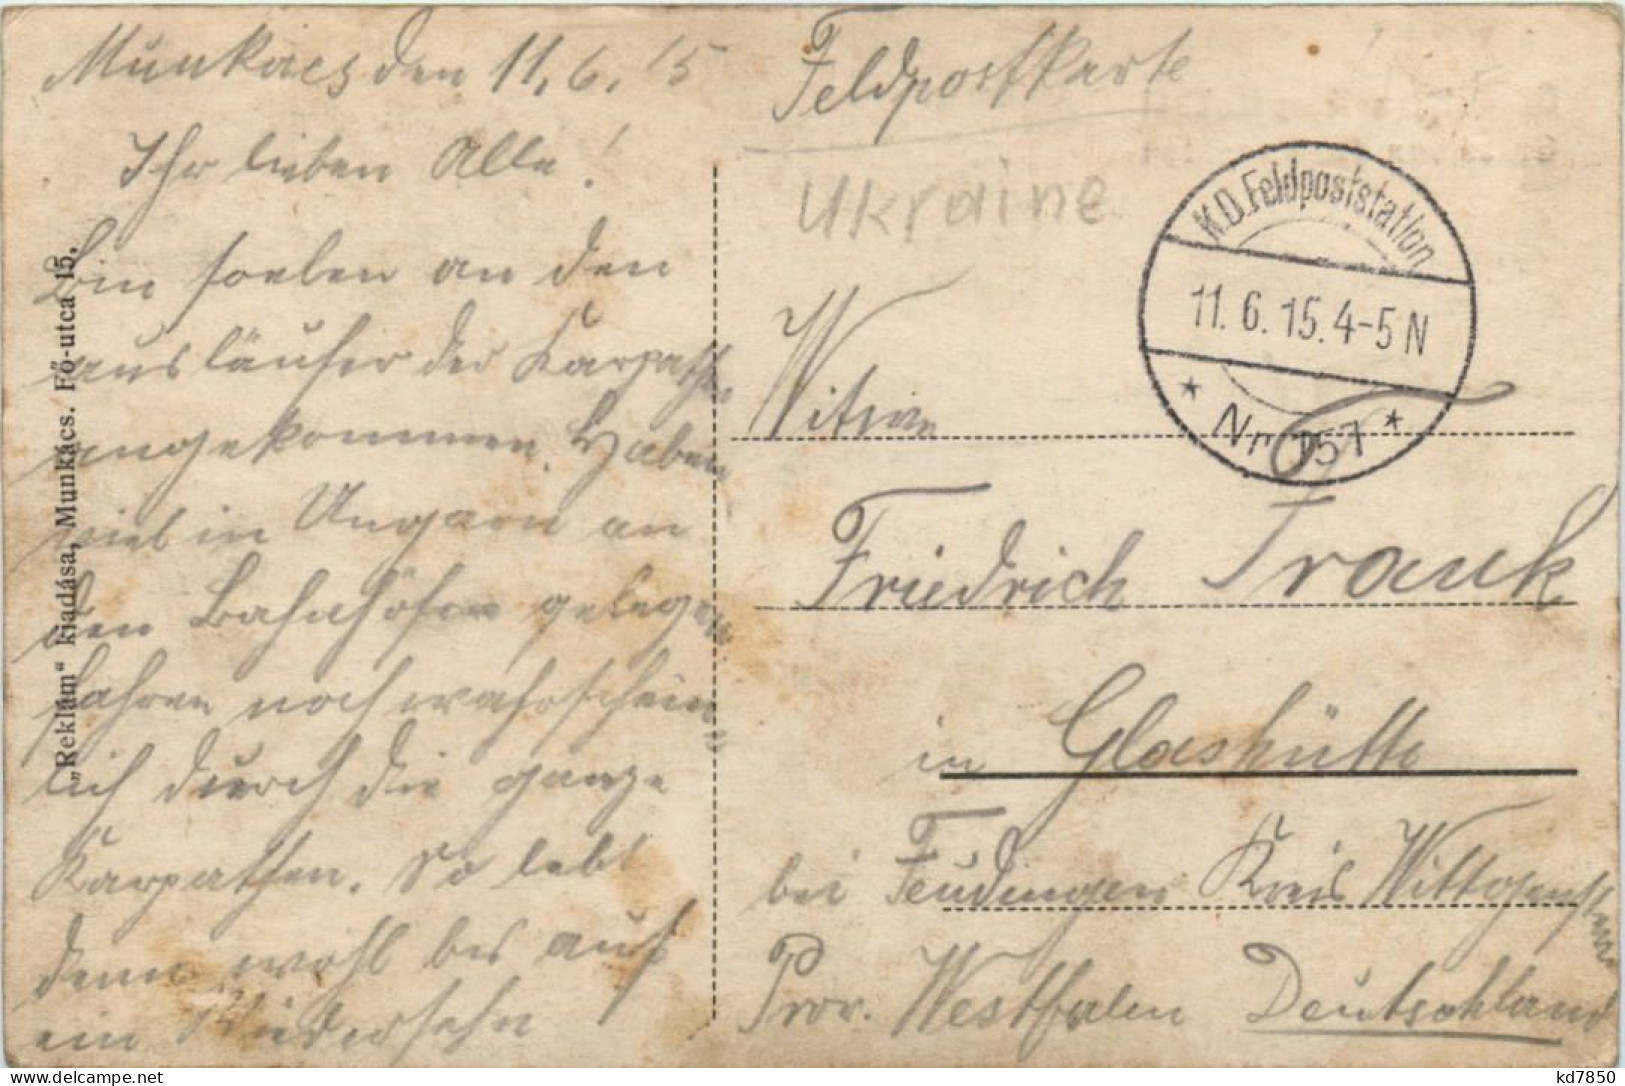 Munkács den 11.6.15
Ihr lieben Alle!
Bin soeben an den
ausläufer der Karpathen
angekommen. Haben
viel in Ungarn an
den Bahnhöfen gelegen
fahren noch wahrschein
lich durch die ganze
Karpathen. So lebt
denn wohl bis auf
ein Wiedersehn
„Reklám“ kiadása, Munkács. Fő-utca 15.
Feldpostkarte
Ukraine
K.D. Feldpoststation
11.6.15.4-5N
* Nr 157 *
Witwe
Friedrich Frank
in Glashütte
bei Feudingen Kreis Wittgenstein
Prov. Westfalen Deutschland
kd7850